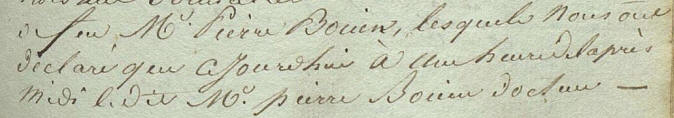 de feu Mr. Pierre Bouin, lesquels nous ont
déclaré que ce jourdhui à une heure de laprès
midi le dit Mr. pierre Bouin docteur —